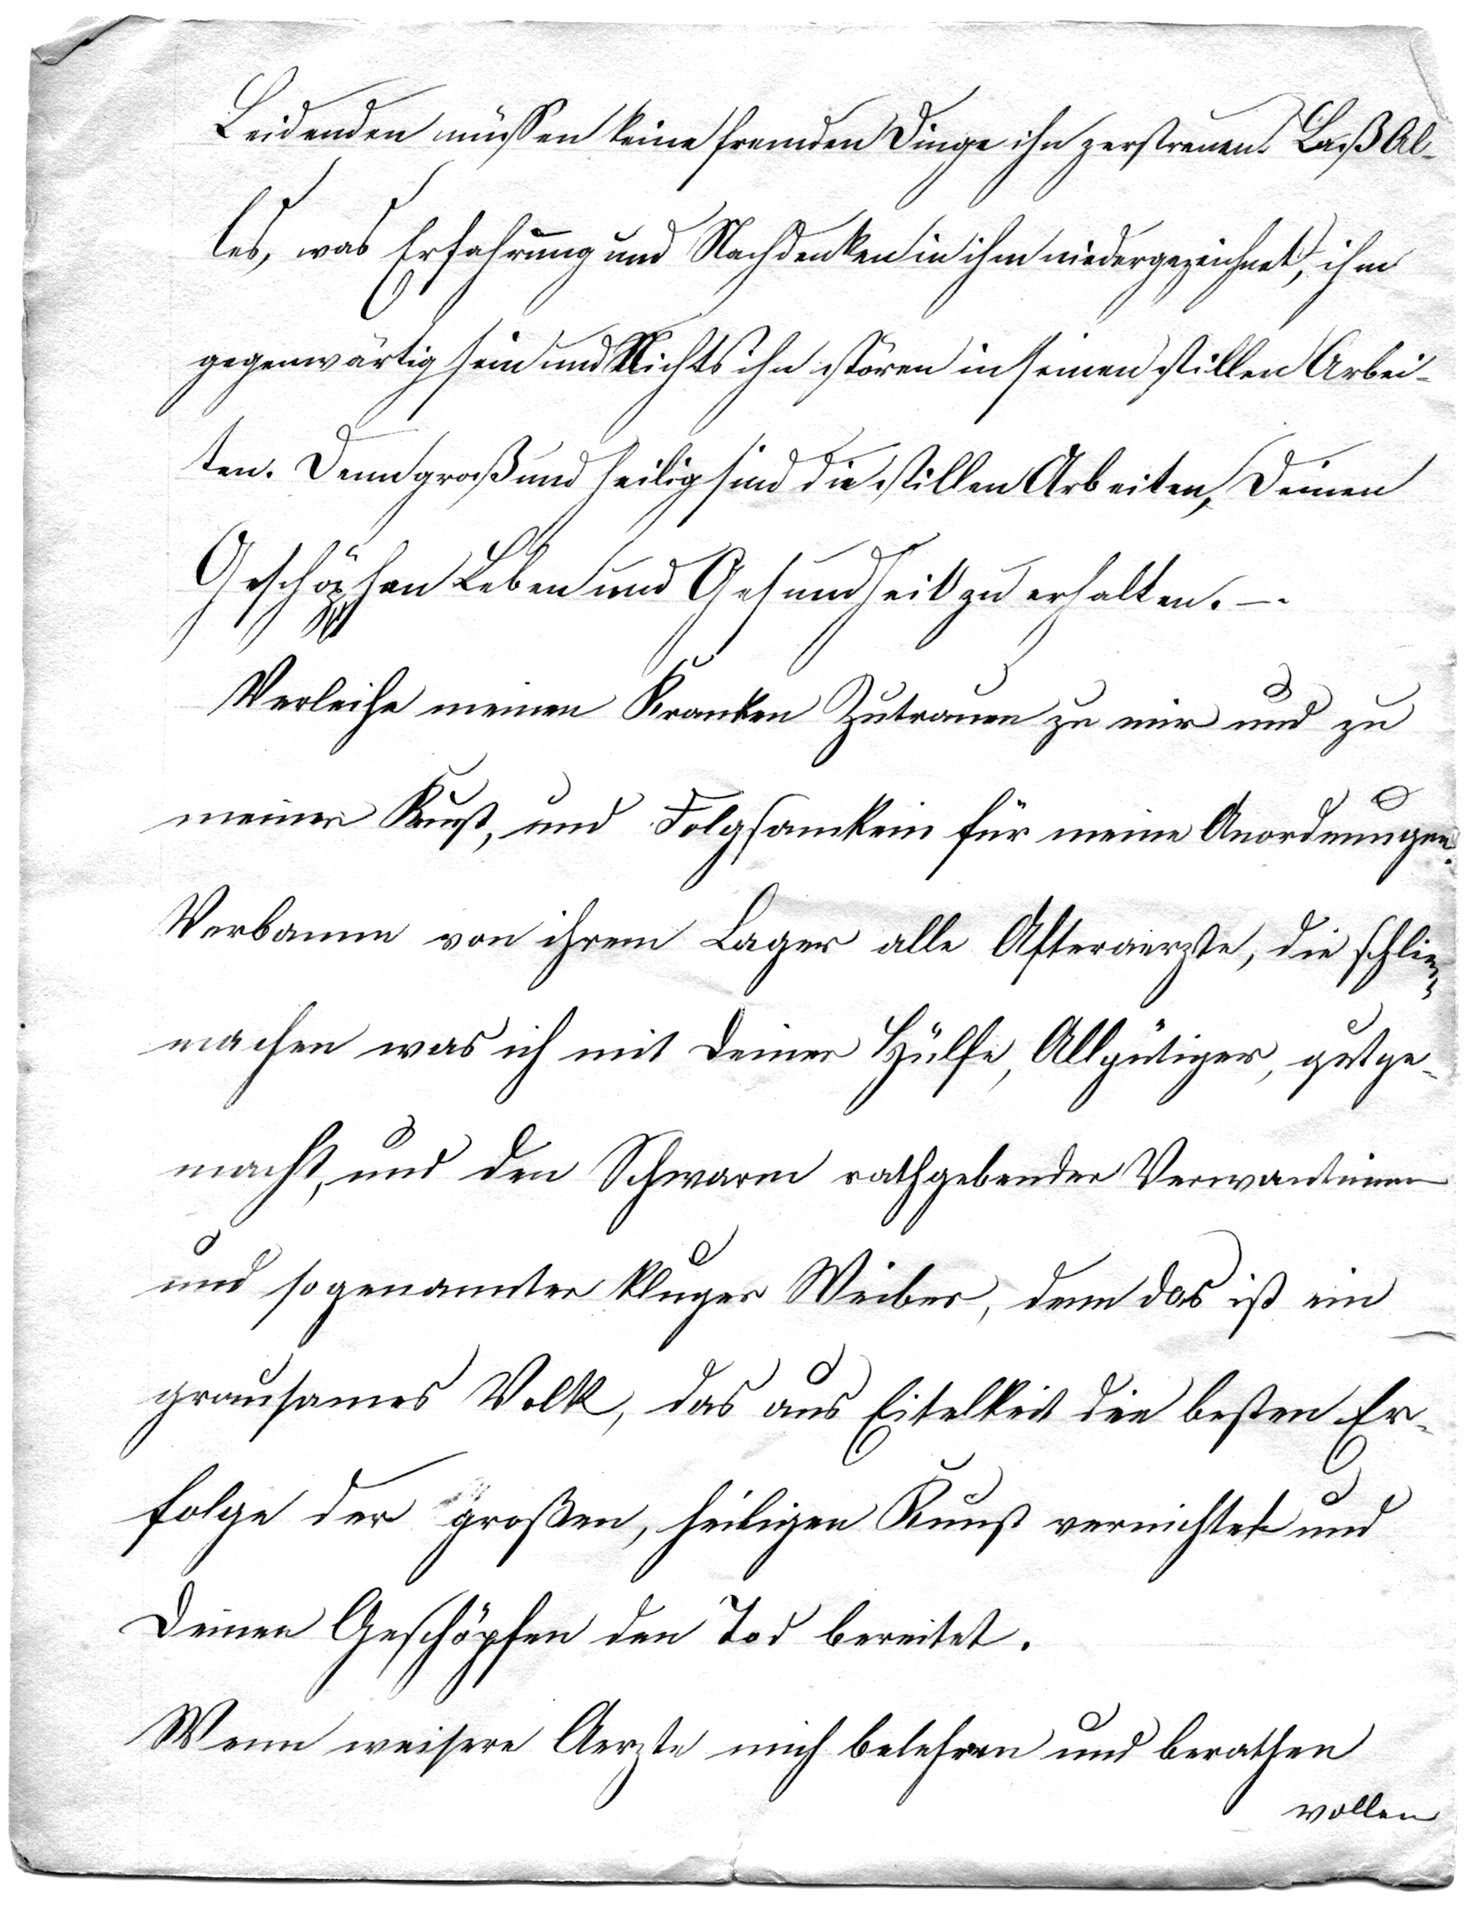 Leidenden müssen keine fremden Dinge ihn zerstreuen. Laß Al-
les, was Erfahrung und Nachdenken in ihm niedergezeichnet, ihm
gegenwärtig sein und Nichts ihn stören in seinen stillen Arbei-
ten. Denn groß und heilig sind die stillen Arbeiten, Deinen
Geschöpfen Leben und Gesundheit zu erhalten. —.
Verleihe meinen Kranken Zutrauen zu mir und zu
meiner Kunst, und Folgsamkein für meine Anordnungen.
Verbanne von ihrem Lager alle Afteraerzte, die schlim
machen was ich mit Deiner Hülfe, Allgütiger, gutge-
macht, und den Schwarm rathgebender Verwantinnen
und sogenannter kluger Weiber, denn das ist ein
grausames Volk, das aus Eitelkeit die besten Er-
folge der großen, heiligen Kunst vernichtet und
Deinen Geschöpfen den Tod bereitet.
Wenn weisere Aerzte mich belehren und berathen
wollen